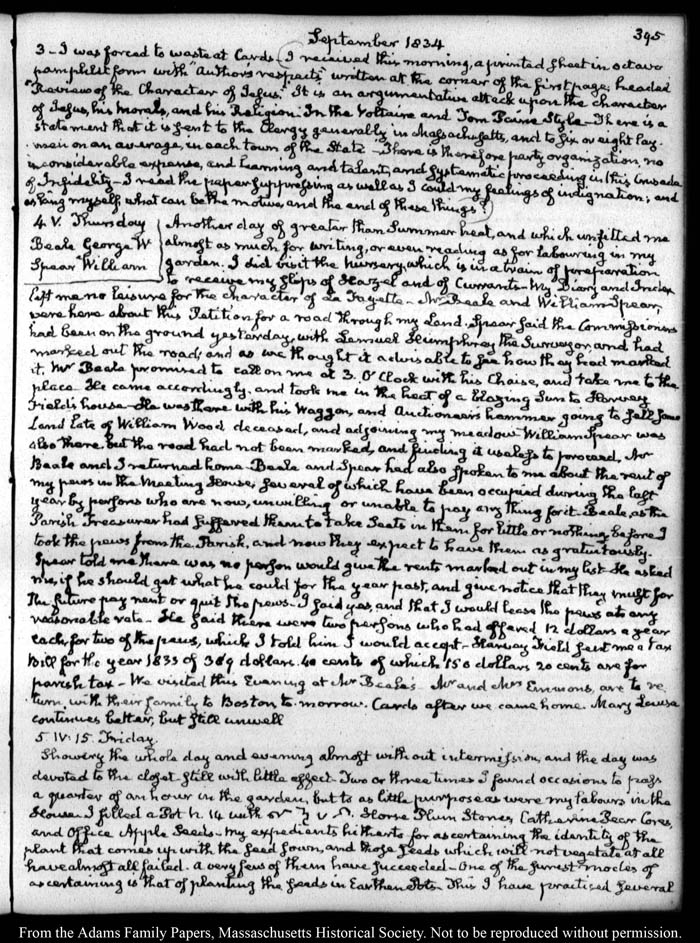 September 1834
395
3 - I was forced to waste at Cards - I received this morning, a printed sheet in octavo
pamphlet form with "Author's respects" written at the corner of the first page; headed
"Review of the Character of Jesus." It is an argumentative attack upon the character
of Jesus, his Morals, and his Religion - In the Voltaire and Tom Paine Style - There is a
statement that it is sent to the Clergy generally in Massachusetts, and to six or eight lay-
men on an average, in each town of the State - There is therefore party organization, no
inconsiderable expense, and learning and talent, and systematic proceeding in this Crusade
of Infidelity - I read the paper suppressing as well as I could my feelings of indignation; and
asking myself, what can be the motive, and the end of these things?
4. V. Thursday
Beale George W
Spear William
Another day of greater than Summer heat, and which unfitted me
almost as much for writing, or even reading as for labouring in my
garden. I did visit the Nursery, which is in a train of preparation
to receive my Slips of Hazel and of Currants - My Diary and Index
left me no leisure for the character of La Fayette - Mr Beale and William Spear,
were here about this Petition for a road through my Land. Spear said the Commissioners
had been on the ground yesterday, with Lemuel Humphrey the Surveyor, and had
marked out the road; and as we thought it advisable to see how they had marked
it, Mr Beale promised to call on me at 3. O'Clock with his Chaise, and take me to the
place - He came accordingly, and took me in the heat of a blazing Sun to Harvey
Field's house - He was there with his Waggon, and Auctioneer's hammer going to sell some
Land late of William Wood deceased, and adjoining my meadow - William Spear was
also there, but the road had not been marked, and finding it useless to proceed, Mr
Beale and I returned home - Beale and Spear had also spoken to me about the rent of
my pews in the Meeting House, several of which have been occupied during the last
year by persons who are now, unwilling or unable to pay any thing for it - Beale, as the
Parish Treasurer had suffered them to take Seats in them for little or nothing, before I
took the pews from the Parish, and now they expect to have them as gratuitously.
Spear told me there was no person would give the rents marked out in my list - He asked
me, if he should get what he could for the year past, and give notice that they must for
the future pay rent or quit the pews - I said yes, and that I would lease the pews at any
reasonable rate - He said there were two persons who had offered 12 dollars a year
each, for two of the pews, which I told him I would accept - Harvey Field sent me a tax
Bill for the year 1833 of 389 dollars. 40 cents of which 150 dollars 20 cents are for
parish tax - We visited this Evening at Mr Beale's - Mr and Mrs Emmons, are to re-
turn, with their family to Boston to-morrow. Cards after we came home. Mary Louisa
continues better, but still unwell
5. IV. 15. Friday.
Showery the whole day and evening almost without intermission, and the day was
devoted to the closet still with little effect - Two or three times I found occasions to pass
a quarter of an hour in the garden, but to as little purpose as were my labours in the
House - I filled a Pot N. 14 with Horse Plum Stones, Catharine Pear Cores,
and Office Apple Seeds - My expedients hitherto for ascertaining the identity of the
plant that comes up with the seed sown, and those seeds which will not vegetate at all
have almost all failed. A very few of them have succeeded - One of the surest modes of
ascertaining is that of planting the seeds in Earthen Pots - This I have practised several
From the Adams Family Papers, Massachusetts Historical Society. Not to be reproduced without permission.